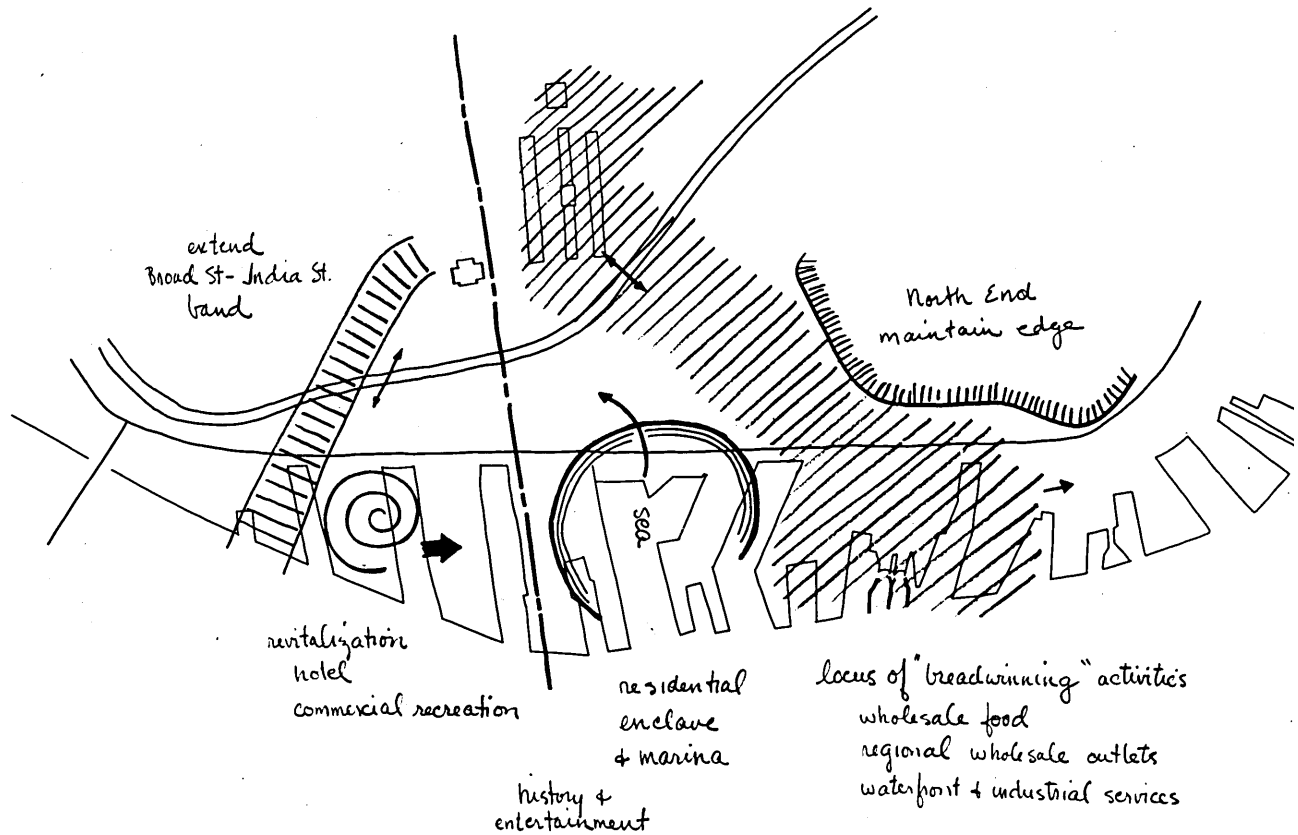 extend
Broad St- India St.
band
North End
maintain edge
sea
revitalization
hotel
commercial recreation
residential
enclave
& marina
history &
entertainment
locus of "breadwinning" activities
wholesale food
regional wholesale outlets
waterfront & industrial services